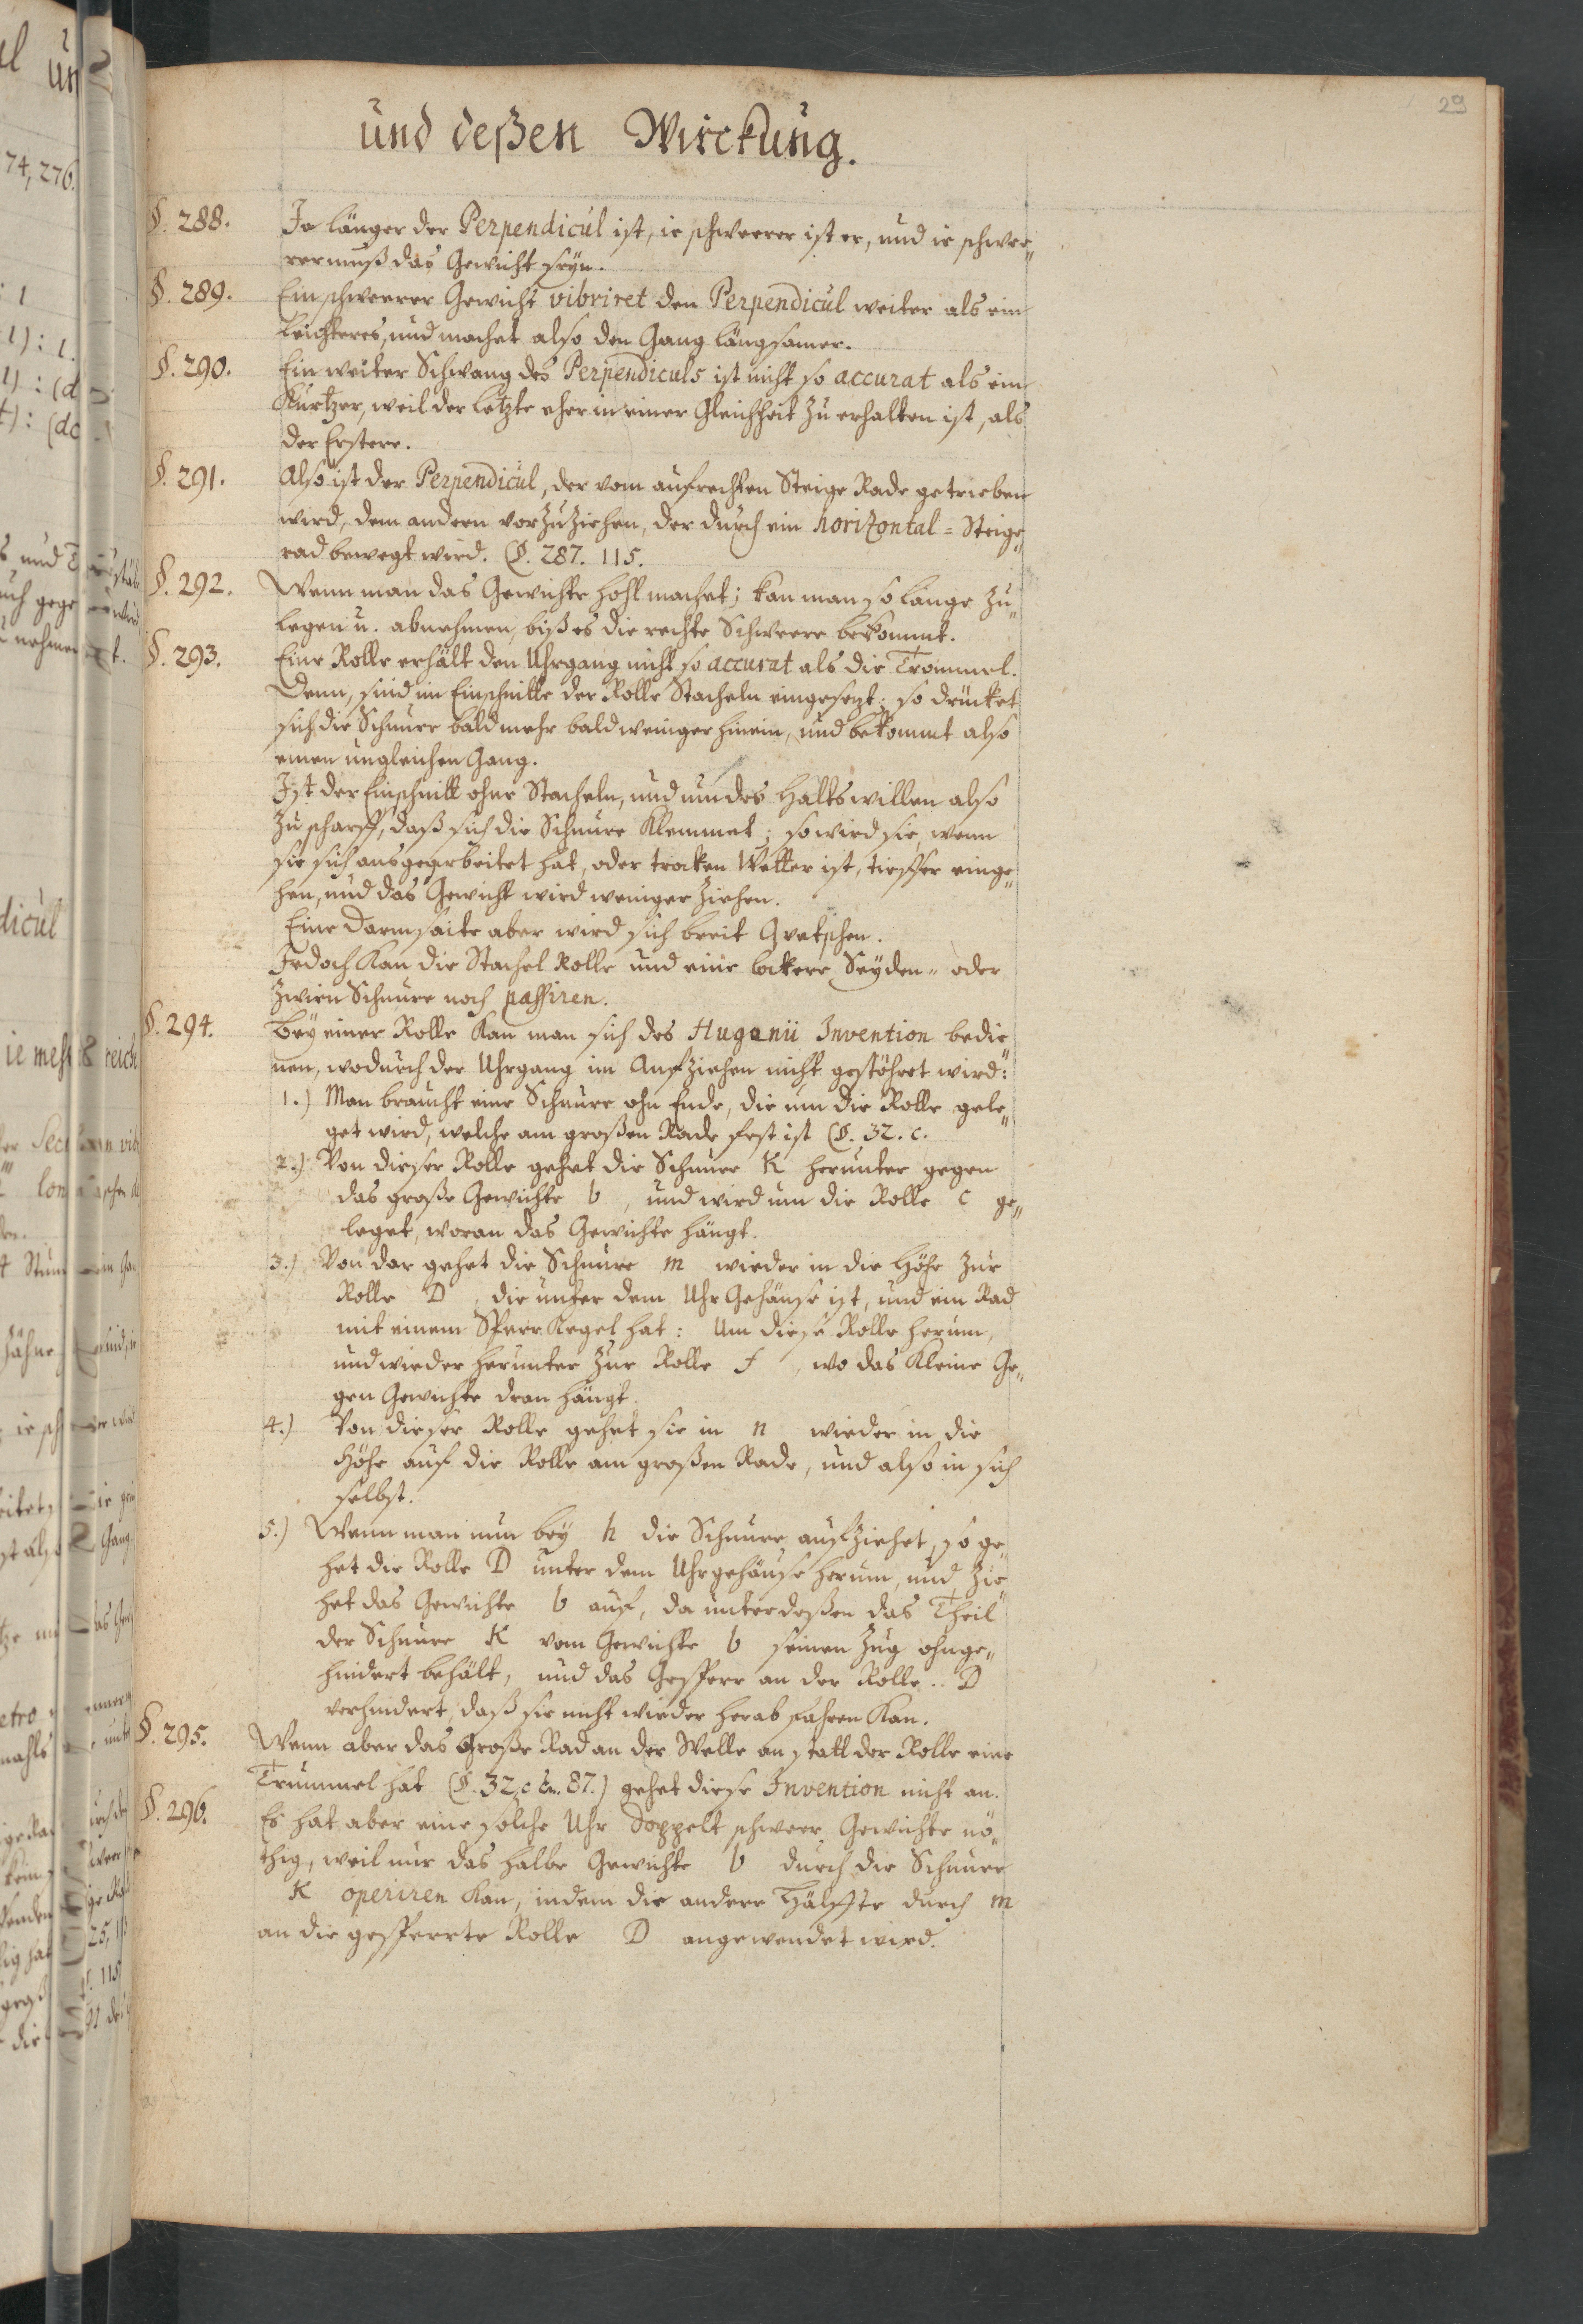 29
und deßen Wirckung.
§. 288. Je länger der Perpendicul ist, ie schweerer ist er, und ie schwee„
rer muß das Gewicht seyn.
§. 289. Ein schweerer Gewicht vibriret den Perpendicul weiter als ein
leichteres, und machet also den Gang längsamer.
§. 290. Ein weiter Schwang des Perpendiculs ist nicht so accurat als ein
Kurtzer, weil der letzte eher in einer Gleichheit zu erhalten ist, als
der Erstere.
§. 291. Also ist der Perpendicul, der vom aufrechten Steige Rade getrieben
wird, dem andern vorzuziehen, der durch ein horizontal = Steige„
rad bewegt wird. (§. 287. 115.
§. 292. Wenn man das Gewichte hohl machet; kan man so lange zu„
legen u. abnehmen, biß es die rechte Schweere bekommt.
§. 293. Eine Rolle erhält den Uhrgang nicht so accurat als die Trommel.
Denn, sind im Einschnitte der Rolle Stacheln eingesezt; so drücket
sich die Schnure bald mehr bald weniger hinein, und bekommt also
einen ungleichen Gang.
Ist der Einschnitt ohne Stacheln, und um des Halts willen also
zu scharff, daß sich die Schnure Klemmet; so wird sie, wenn
sie sich ausgearbeitet hat, oder trocken Wetter ist, tieffer einge„
hen, und das Gewicht wird weniger ziehen.
Eine Darmsaite aber wird sich breit Qvetschen.
Jedoch Kan die Stachel Rolle und eine lockere Seyden„ oder
Zwirn Schnure noch passiren.
§. 294. Bey einer Rolle Kan man sich des Hugenii Invention bedie„
nen, wodurch der Uhrgang im Aufziehen nicht gestöhret wird:
1.) Man braucht eine Schnure ohn Ende, die um die Rolle gele„
get wird, welche am großen Rade fest ist (§. 32. c.
2.) Von dieser Rolle gehet die Schnure K herunter gegen
das große Gewichte b, und wird um die Rolle c ge„
leget, woran das Gewichte hängt.
3.) Von dar gehet die Schnure m wieder in die Höhe zur
Rolle D, die unter dem Uhr Gehäuse ist, und ein Rad
mit einem Sperr Kegel hat: Um diese Rolle herum,
und wieder herunter zur Rolle f, wo das Kleine Ge„
gen Gewichte dran hängt.
4.) Von dieser Rolle gehet sie in n wieder in die
Höhe auf die Rolle am großen Rade, und also in sich
selbst.
5.) Wenn man nun bey h die Schnure aufziehet, so ge„
het die Rolle D unter dem Uhrgehäuse herum, und zie„
het das Gewichte b auf, da unterdeßen das Theil
der Schnure K vom Gewichte b seinen Zug ohnge„
hindert behält, und das Gesperr an der Rolle D
verhindert, daß sie nicht wieder herab fahren Kan.
§. 295. Wenn aber das Große Rad an der Welle an statt der Rolle eine
Trummel hat (§. 32, c &. 87.) gehet diese Invention nicht an.
§. 296. Es hat aber eine solche Uhr doppelt schweer Gewichte nö„
thig, weil nur das halbe Gewichte b durch die Schnure
K operiren Kan, indem die andere Hälffte durch m
an die gesperrte Rolle D angewendet wird.